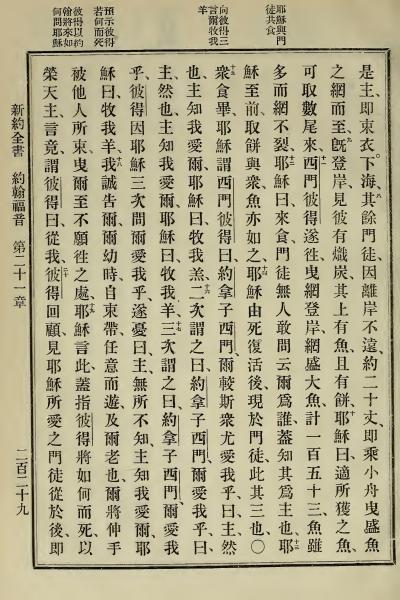 耶穌與門
徒共食
向彼得三
言爾牧我
羊
預示彼得
若何而死
彼得以約
翰將來如
何問耶穌
是主、即束衣、下海、八其餘門徒、因離岸不遠、約二十丈、即乘小舟曳盛魚
之網而至、九旣登岸、見彼有熾炭、其上有魚、且有餅、十耶穌曰、適所獲之魚、
可取數尾來、十一西門彼得遂往、曳網登岸、網盛大魚、計一百五十三、魚雖
多而網不裂、十二耶穌曰、來食、門徒無人敢問云、爾爲誰、蓋知其爲主也、十三耶
穌至前、取餅與衆、魚亦如之、十四耶穌由死復活後、現於門徒、此其三也、〇
十五衆食畢、耶穌謂西門彼得曰、約拿子西門、爾較斯衆尤愛我乎、曰、主、然
也、主知我愛爾、耶穌曰、牧我羔、十六二次謂之曰、約拿子西門、爾愛我乎、曰、
主、然也、主知我愛爾、耶穌曰、牧我羊、十七三次謂之曰、約拿子西門、爾愛我
乎、彼得因耶穌三次問爾愛我乎、遂憂曰、主無所不知、主知我愛爾、耶
穌曰、牧我羊、十八我誠告爾、爾幼時自束帶、任意而遊、及爾老也、爾將伸手
被他人所束、曳爾至不願往之處、十九耶穌言此、蓋指彼得將如何而死、以
榮天主、言竟、謂彼得曰、從我、二十彼得回顧、見耶穌所愛之門徒從於後、即
新約全書　約翰福音　第二十一章　二百二十九